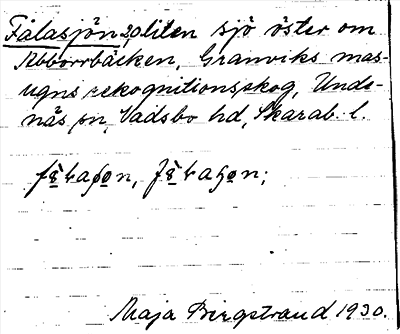 Fålasjön, liten sjö öster om
Abborrbäcken, Granviks mas-
ugns rekognitionsskog, Unde-
näs sn, Vadsbo hd, Skarab. l.
Maja Bergstrand 1930.